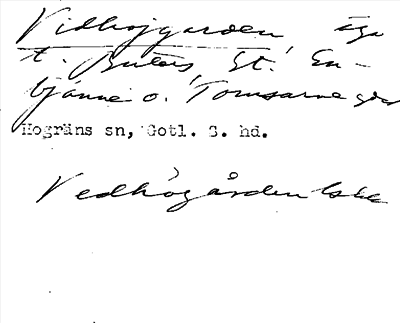 Vidhöjgården äga
t. Buters, St. En-
bjänne o. Tomsarve går
Hogräns sn, Gotl. S. hd.
Vedhögården